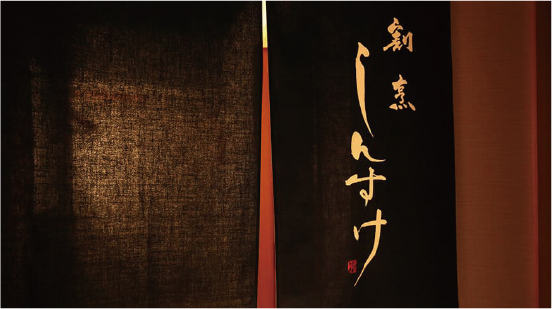 割烹
しんすけ